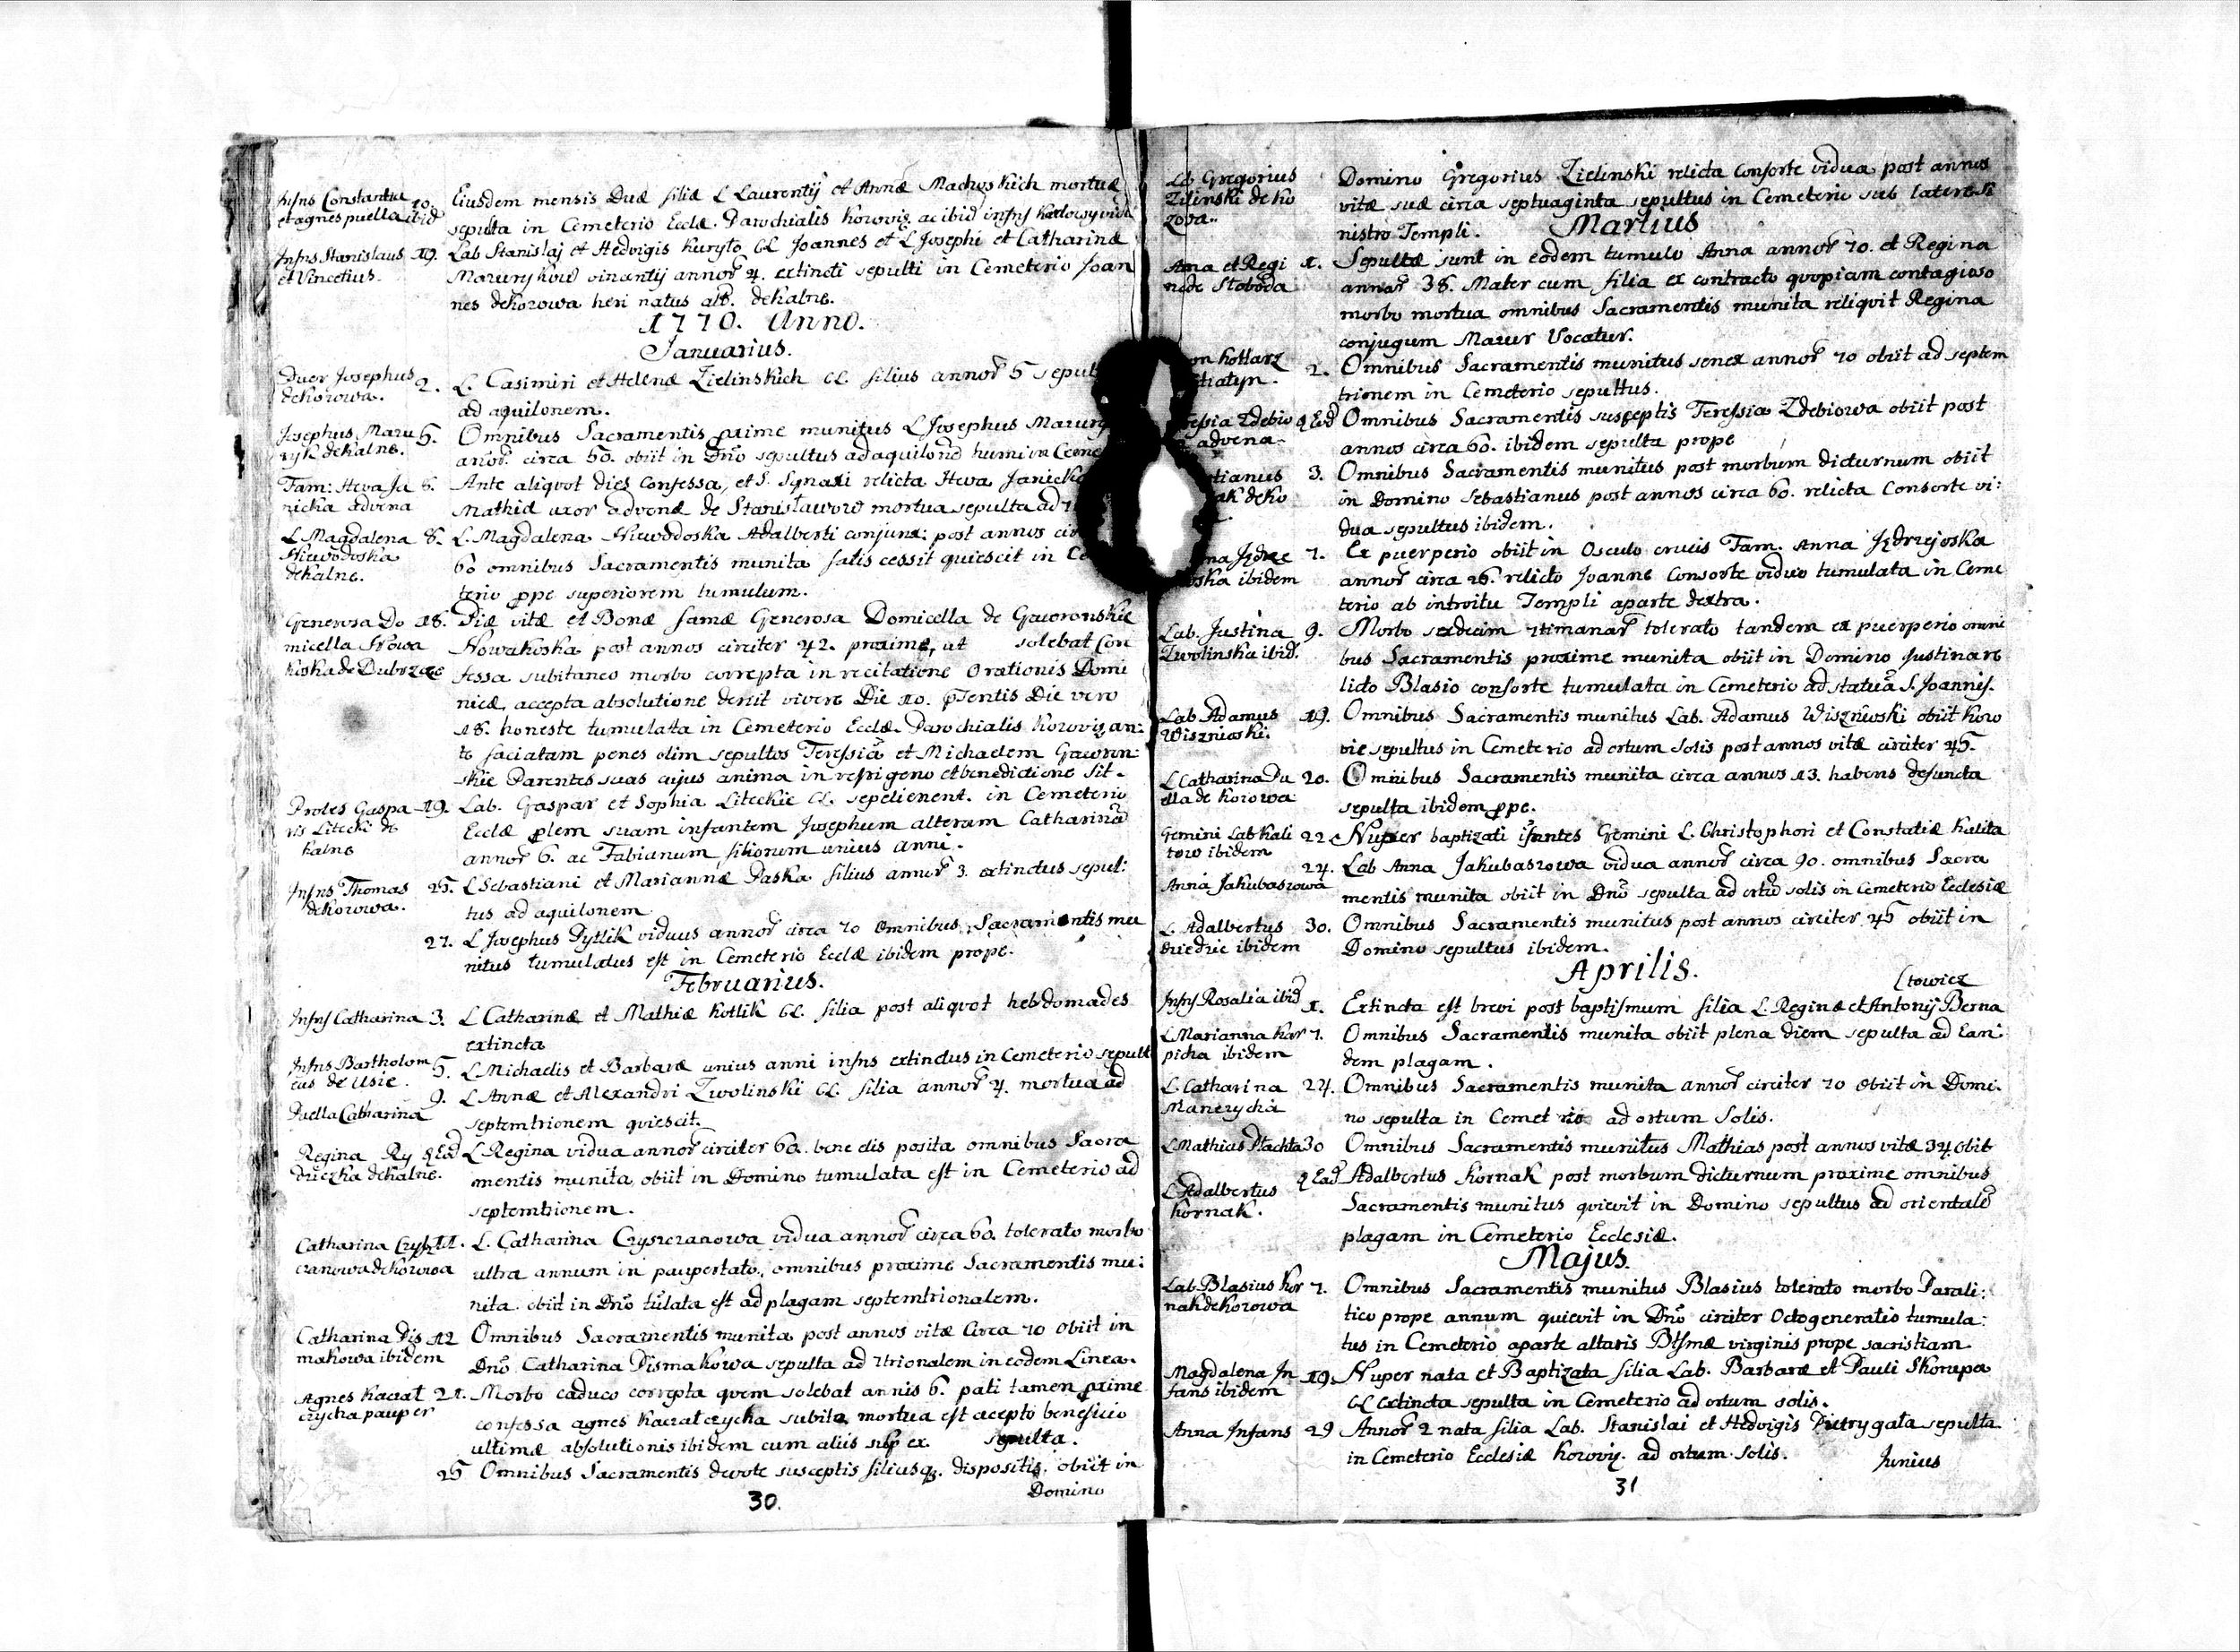 Infns Constantia 10. Eiusdem mensis Duæ filiæ L Laurentij et Annæ Mackoskich mortuæ
et agnes puella ibid sepulta in Cemeterio Eccłæ. Parochialis Korovię ac ibid infns
Infns Stanislaus 19. Lab Stanislaj et Hedvigis Kuryło CL Joannes et L Josephi et Catharinæ
et Vincetius. annor 4. extincti sepulti in Cemeterio Joan
nes de Korowa heri natus alt. de Kalne.
1770. Anno.
Januarius.
Puer Josephus 2. L. Casimiri et Helenæ Zielinskich CL. filius annor 5 sepul
de Korowa. ad aquilonem.
Josephus Mazu 5. Omnibus Sacramentis pxime munitus L Josephus Mazury
ryk de Kalne. anor. circa 60. obiit in Dño sepultus ad aquilonē humi in Ceme
Fam: Hewa Ja 6. Ante aliqvot dies Confessa, et S. Synaxi relicta Hewa Janicka
nicka advena Mathiæ uxor advenæ de Stanisławow mortua sepulta ad
L Magdalena 8. L. Magdalena Niewodoska Adalberti conjunx: post annos cir
Niewodoska 60 omnibus Sacramentis munita fatis cessit quiescit in Ce
de Kalne. terio ppe superiorem tumulum.
Generosa Do 18. Piæ vitæ et Bonæ famæ Generosa Domicella de Gaworonskie
micella Nowa Nowakoska post annos circiter 42. proxime, ut solebat Con
koska de Dubszcze fessa subitaneo morbo correpta in recitatione Orationis Domi
nicæ, accepta absolutione desiit vivere Die 10. pSentis Die vero
18. honeste tumulata in Cemeterio Eccłæ. Parochialis Korovię an:
te faciatam penes olim sepultos Teressiā et Michaelem Gaworon:
skie Parentes suas cujus anima in refrigerio et benedictione sit.
Proles Gaspa 19. Lab. Gaspar et Sophia Liteckie CL. sepelierent. in Cemeterio
ris Litecki de Eccłæ plem suam infantem Josephum alteram Catharinā
Kalne annor 6. ac Fabianum filiorum unius anni.
Infns Thomas 25. L Sebastiani et Mariannæ Paska filius annor 3. extinctus sepul:
de Korowa. tus ad aquilonem
27. L Josephus Pytlik viduus annor circa 70 Omnibus Sacramentis mu
nitus tumulatus est in Cemeterio Eccłæ ibidem prope.
Februarius.
Infns Catharina 3. L Catharinæ et Mathiæ Kotlik CL. filia post aliqvot hebdomades
extincta
Infns Bartholom 5. L Michaelis et Barbaræ unius anni infns extinctus in Cemeterio sepult
eus de Usie.
Puella Catharina 9. L Annæ et Alexandri Zwolinski CL. filia annor 4. mortua ad
septemtrionem quiescit.
Regina Ry q Ead L Regina vidua annor circiter 60. bene dis posita omnibus Sacra
dzieczka de Kalne. mentis munita, obiit in Domino tumulata est in Cemeterio ad
septemtrionem.
Catharina Czysz 11. L. Catharina Czyszczanowa vidua annor circa 60. tolerato morbo
czanowa de Korowa ultra annum in paupertate, omnibus proxime Sacramentis mu:
nita obiit in Dño tūlata est ad plagam septemtrionalem.
Catharina Pis 12 Omnibus Sacramentis munita post annos vitæ Circa 70 obiit in
makowa ibidem Dño Catharina Pismakowa sepulta ad 7trionalem in eodem Linea.
Agnes Kaczał 21. Morbo caduco correpta qvem solebat annis 6. pati tamen pxime
czycha pauper confessa agnes Kaczałczycha subito mortua est acepto beneficio
ultimæ absolutionis ibidem cum aliis sepulta.
25 Omnibus Sacramentis devote susceptis filiusq. dispositis, obiit in
Domino
30.
Lab Gregorius Domino Gregorius Zielinski relicta Consorte vidua post annos
Zilinski de Ko vitæ suæ circa septuaginta sepultus in Cemeterio sub latere si
rowa.. nistro Templi. Martius
Anna et Regi 1. Sepultæ sunt in eodem tumulo Anna annor 70. et Regina
na de Słoboda annor 38. Mater cum filia ex contracto qvopiam contagioso
morbo mortua omnibus Sacramentis munita reliqvit Regina
conjugum Mazur Vocatur.
on Kotlarz 2. Omnibus Sacramentis munitus senex annor 70 obiit ad septem
tiatyn. trionem in Cemeterio sepultus.
essia Zdebio q Ead Omnibus Sacramentis susceptis Teressia Zdebiowa obiit post
advena. annos circa 60. ibidem sepulta prope
tianus 3. Omnibus Sacramentis munitus post morbum diuturnum obiit
ak de Ko in Domino Sebastianus post annos circa 60. relicta Consorte vi:
dua sepultus ibidem.
na Jędrze 7. Ex puerperio obiit in Osculo crucis Fam. Anna Jędrzejoska
oska ibidem annor circa 26. relicto Joanne Consorte viduo tumulata in Ceme
terio ab introitu Templi aparte dextra.
Lab. Justina 9. Morbo sedecim 7timanar tolerato tandem ex puerperio omni
Zwolinska ibid. bus Sacramentis proxime munita obiit in Domino Justina re
licto Blasio consorte tumulata in Cemeterio ad statuā S. Joannis.
Lab Adamus 19. Omnibus Sacramentis munitus Lab. Adamus Wiszniewski obiit Koro
Wisznioski. vie sepultus in Cemeterio ad ortum solis post annos vitæ circiter 45.
L Catharina Pu 20. Omnibus Sacramentis munita circa annos 13. habens defuncta
ella de Korowa sepulta ibidem ppe.
Gemini Lab Kali 22. Nuper baptizati ifantes Gemini L. Christophori et Constatiæ Kalita
tow ibidem
Anna Jakubaszowa 24. Lab Anna Jakubaszowa vidua annor circa 90. omnibus Sacra
mentis munita obiit in Dño sepulta ad ortū solis in Cemeterio Ecclesiæ
L. Adalbertus 30. Omnibus Sacramentis munitus post annos circiter 45 obiit in
Dziedzic ibidem Domino sepultus ibidem.
Aprilis.
(towicz
Infns Rosalia ibid 1. Extincta est brevi post baptismum filia L. Reginæ et Antonij Berna
L Marianna Kar 7. Omnibus Sacramentis munita obiit plena diem sepulta ad Ean:
picha ibidem dem plagam.
L Catharina 24. Omnibus Sacramentis munita annor circiter 70 Obiit in Domi:
Manezycha no sepulta in Cemet rio ad ortum Solis.
L Mathias Płachta 30 Omnibus Sacramentis munitus Mathias post annos vitæ 34. obit
L Adalbertus q Ead Adalbertus Kornak post morbum diuturnum proxime omnibus
Kornak. Sacramentis munitus qvievit in Domino sepultus ad orientalē
plagam in Cemeterio Ecclesiæ.
Majus.
Lab Blasius Kor 7. Omnibus Sacramentis munitus Blasius tolerato morbo Parali:
nak de Korowa tico prope annum quievit in Dño circiter Octogeneratio tumula:
tus in Cemeterio aparte altaris Btsmæ virginis prope sacristiam
Magdalena In 19. Nuper nata et Baptizata filia Lab. Barbaræ et Pauli Skorupa
fans ibidem CL extincta sepulta in Cemeterio ad ortum solis.
Anna Infans 29 Annor 2 nata filia Lab. Stanislai et Hedvigis Pietrygała sepulta
in Cemeterio Ecclesiæ Korovię. ad ortum solis. Junius
31